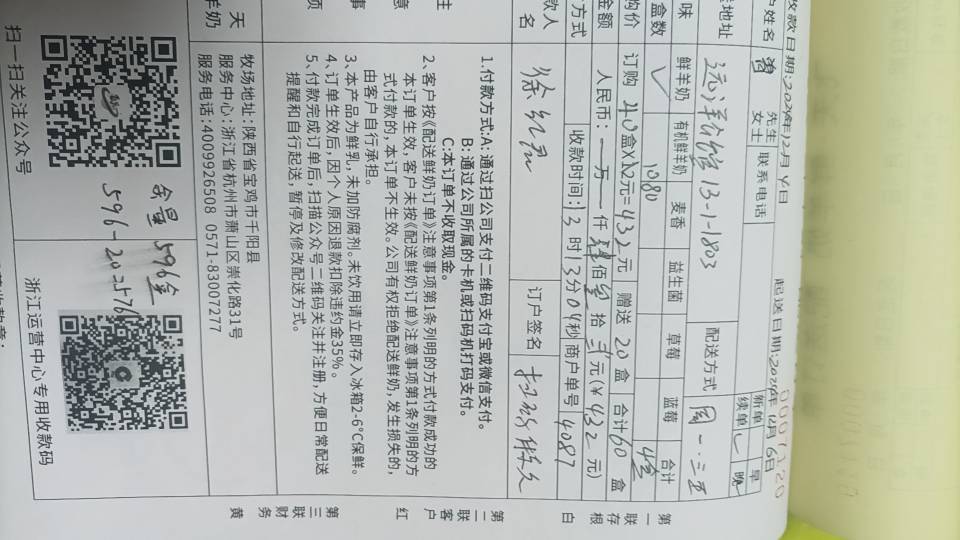 0007120
收款日期:2024年2月4日 起送日期:2024年12月6日
户姓名 先生 女士 联系电话 新单 续单 早 晚
送地址 远洋公馆13-1-1803 配送方式 周一.三.五
味 鲜羊奶 有机鲜羊奶 麦香 益生菌 草莓 蓝莓 合计
盒数 1080
购价 订购 40盒X 元=432元 赠送 20 盒 合计60 盒
金额 人民币: 万 仟 肆佰 叁拾 贰元(¥ 432 元)
方式 收款时间:13 时13分04秒 商户单号 4087
款人名 订户签名
1.付款方式:A: 通过扫公司支付二维码支付宝或微信支付。
B: 通过公司所属的卡机或扫码机打码支付。
C:本订单不收取现金。
2、客户按《配送鲜奶订单》注意事项第1条列明的方式付款成功的
本订单生效, 客户未按《配送鲜奶订单》注意事项第1条列明的方
式付款的,本订单不生效。公司有权拒绝配送鲜奶,发生损失的,
由客户自行承担。
3、本产品为鲜乳,未加防腐剂。未饮用请立即存入冰箱2-6°C保鲜。
4、订单生效后,因个人原因退款扣除违约金35%。
5、付款完成订单后,扫描公众号二维码关注并注册,方便日常配送
提醒和自行起送,暂停及修改配送方式。
主
意
事
项
天
羊奶
牧场地址:陕西省宝鸡市千阳县
服务中心:浙江省杭州市萧山区崇化路31号
服务电话:4009926508 0571-83007277
余量 596盒
596-20=576
扫一扫关注公众号
浙江运营中心专用收款码
第一联存根 白
第二联客户 红
第三联财务 黄